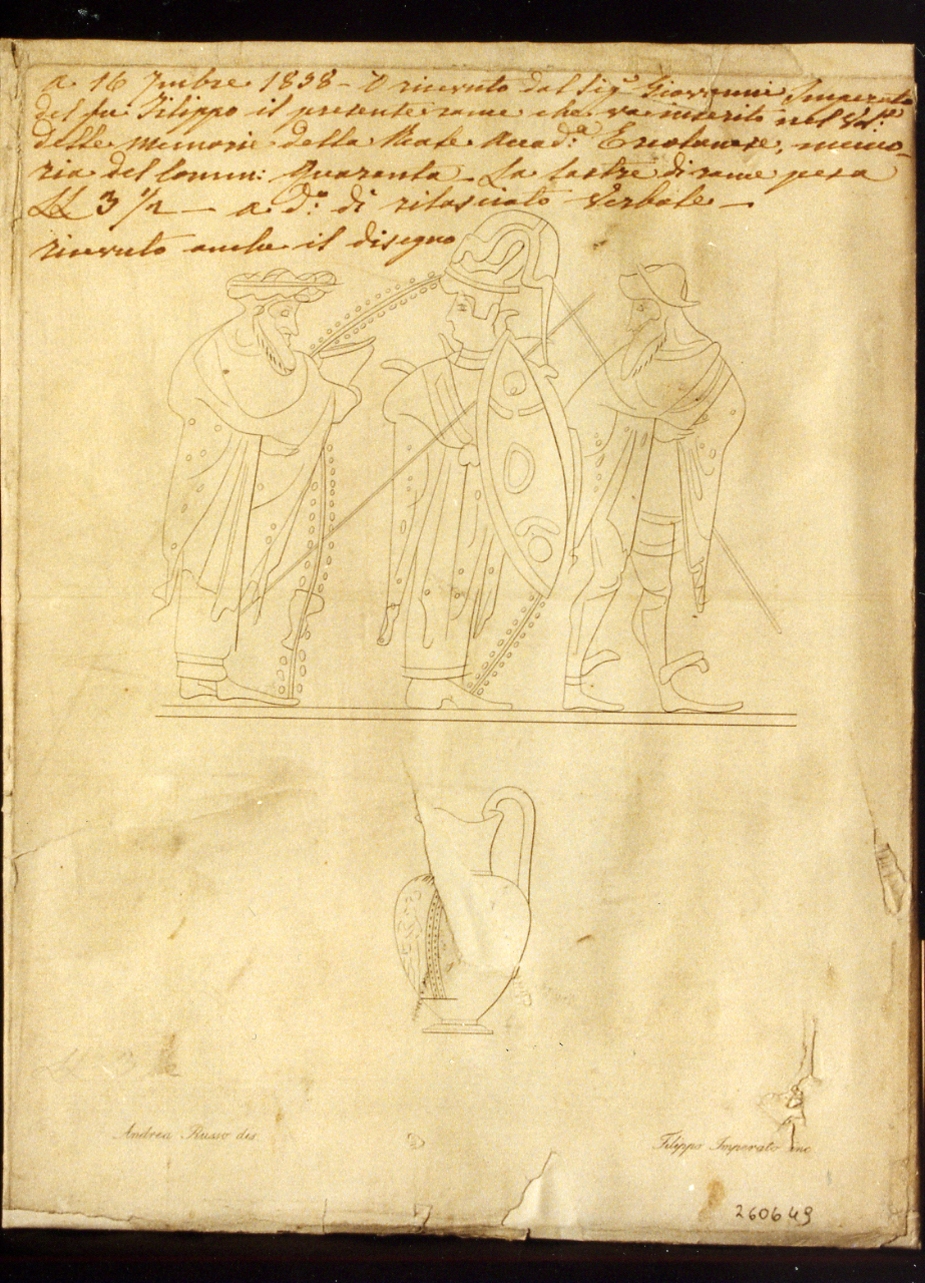 a 16 7mbre 1838 - Ò ricevuto dal Sig.e Giovanni Imperato
del fu Filippo il presente rame che va inserito nel Vol.e
delle Memorie della Reale Accad.a Ercolanese, memo-
ria del Comm: Quaranta - La lastre di rame pesa
LL 3 1/2 — a d.o di rilasciato Verbale —
ricevuto anche il disegno
LL 3
Andrea Russo dis
Filippo Imperato inc
260649